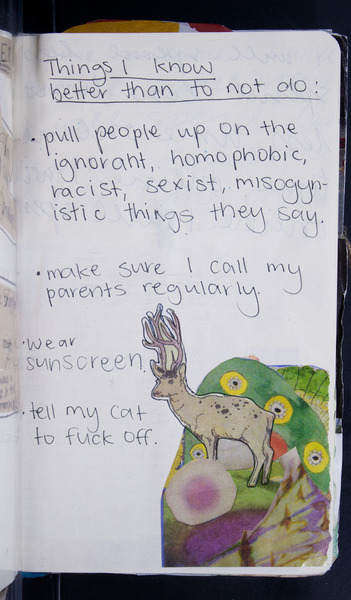 Things I know
better than to not do:
• pull people up on the
ignorant, homophobic,
racist, sexist, misogyn-
istic things they say.
• make sure I call my
parents regularly.
• wear
sunscreen.
• tell my cat
to fuck off.